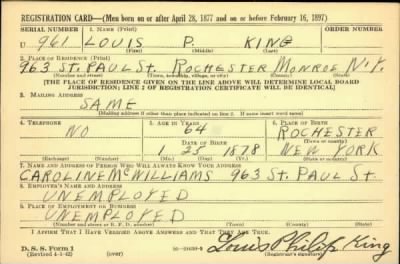 REGISTRATION CARD—(Men born on or after April 28, 1877 and on or before February 16, 1897)
SERIAL NUMBER 1. NAME (Print) ORDER NUMBER
U 961 LOUIS P. KING
(First) (Middle) (Last)
2. PLACE OF RESIDENCE (Print)
963 ST. PAUL ST. ROCHESTER MONROE N.Y.
(Number and street) (Town, township, village, or city) (County) (State)
[THE PLACE OF RESIDENCE GIVEN ON THE LINE ABOVE WILL DETERMINE LOCAL BOARD
JURISDICTION; LINE 2 OF REGISTRATION CERTIFICATE WILL BE IDENTICAL]
3. MAILING ADDRESS
SAME
[Mailing address if other than place indicated on line 2. If same insert word same]
4. TELEPHONE 5. AGE IN YEARS 6. PLACE OF BIRTH
NO 64 ROCHESTER
DATE OF BIRTH (Town or county)
1 25 1878 NEW YORK
(Exchange) (Number) (Mo.) (Day) (Yr.) (State or country)
7. NAME AND ADDRESS OF PERSON WHO WILL ALWAYS KNOW YOUR ADDRESS
CAROLINE MCWILLIAMS 963 ST. PAUL ST.
8. EMPLOYER'S NAME AND ADDRESS
UNEMPLOYED
9. PLACE OF EMPLOYMENT OR BUSINESS
UNEMPLOYED
(Number and street or R. F. D. number) (Town) (County) (State)
I AFFIRM THAT I HAVE VERIFIED ABOVE ANSWERS AND THAT THEY ARE TRUE.
D. S. S. Form 1
(Revised 4-1-42) (over) Louis Philip King
(Registrant's signature)